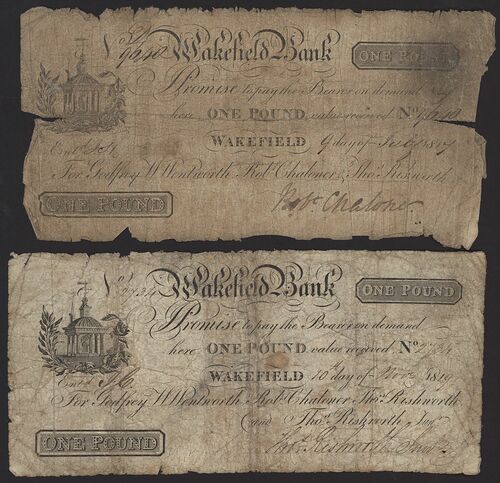 No 9240 Wakefield Bank ONE POUND
I Promise to pay the Bearer on demand
here ONE POUND value received No
WAKEFIELD 9 day of 1817
Entd
For Godfrey W. Wentworth Robt. Chaloner & Thos. Rishworth
ONE POUND
Robt Chaloner
No 2724 Wakefield Bank ONE POUND
I Promise to pay the Bearer on demand
here ONE POUND value received No 2724
WAKEFIELD 10 day of Nov 1819
Entd
For Godfrey W. Wentworth Robt. Chaloner Thos. Rishworth
and Thos. Rishworth Junr
ONE POUND
Thos. Rishworth Junr